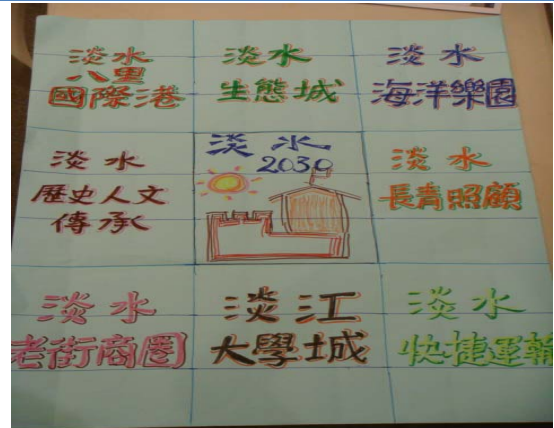 淡水
八里
國際港
淡水
生態城
淡水
海洋樂園
淡水
歷史人文
傳承
淡水
2030
淡水
長青照顧
淡水
老街商圈
淡江
大學城
淡水
快捷運輸